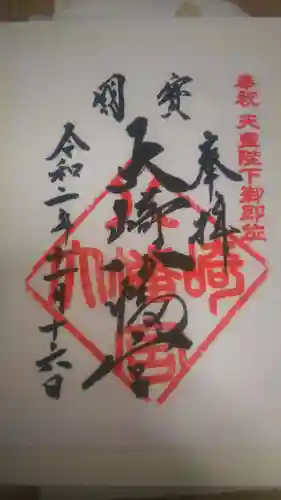 奉祝 天皇陛下御即位
奉拝
大崎八幡宮
大崎八幡宮
令和二年十一月十六日